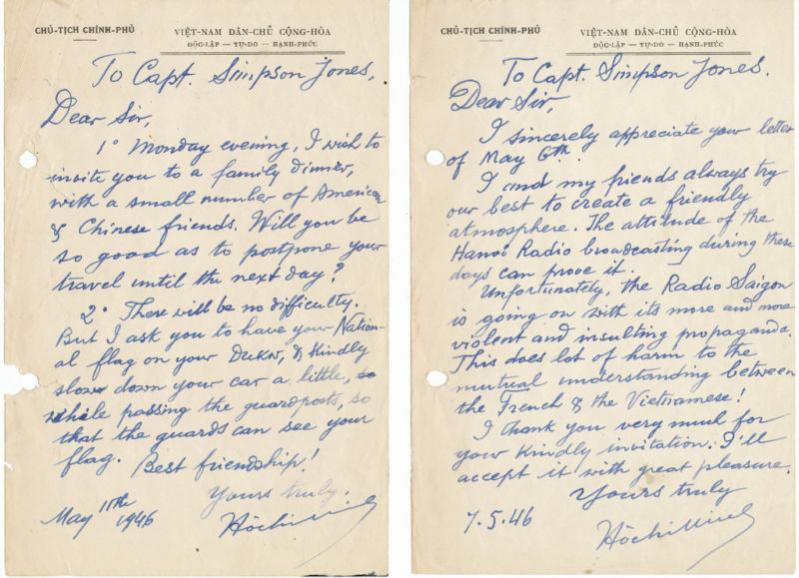 CHỦ-TỊCH CHÍNH-PHỦ
VIỆT-NAM DÂN-CHỦ CỘNG-HÒA
ĐỘC-LẬP — TỰ-DO — HẠNH-PHÚC
To Capt. Simpson Jones,
Dear Sir,
1° Monday evening, I wish to
invite you to a family dinner,
with a small number of American
& Chinese friends. Will you be
so good as to postpone your
travel until the next day?
2° There will be no difficulty.
But I ask you to have your Nation-
al flag on your & Kindly
slow down your car a little,
while passing the guardposts, so
that the guards can see your
flag. Best friendship!
Yours truly,
May 11th 1946
Hồchíminh
CHỦ-TỊCH CHÍNH-PHỦ
VIỆT-NAM DÂN-CHỦ CỘNG-HÒA
ĐỘC-LẬP — TỰ-DO — HẠNH-PHÚC
To Capt. Simpson Jones.
Dear Sir,
I sincerely appreciate your letter
of May 6th.
I and my friends always try
our best to create a friendly
atmosphere. The attitude of the
Hanoi Radio broadcasting during these
days can prove it.
Unfortunately, the Radio Saigon
is going on with its more and more
violent and insulting propaganda.
This does lot of harm to the
mutual understanding between
the French & the Vietnamese!
I thank you very much for
your Kindly invitation. I'll
accept it with great pleasure.
Yours truly
7.5.46
Hồchíminh